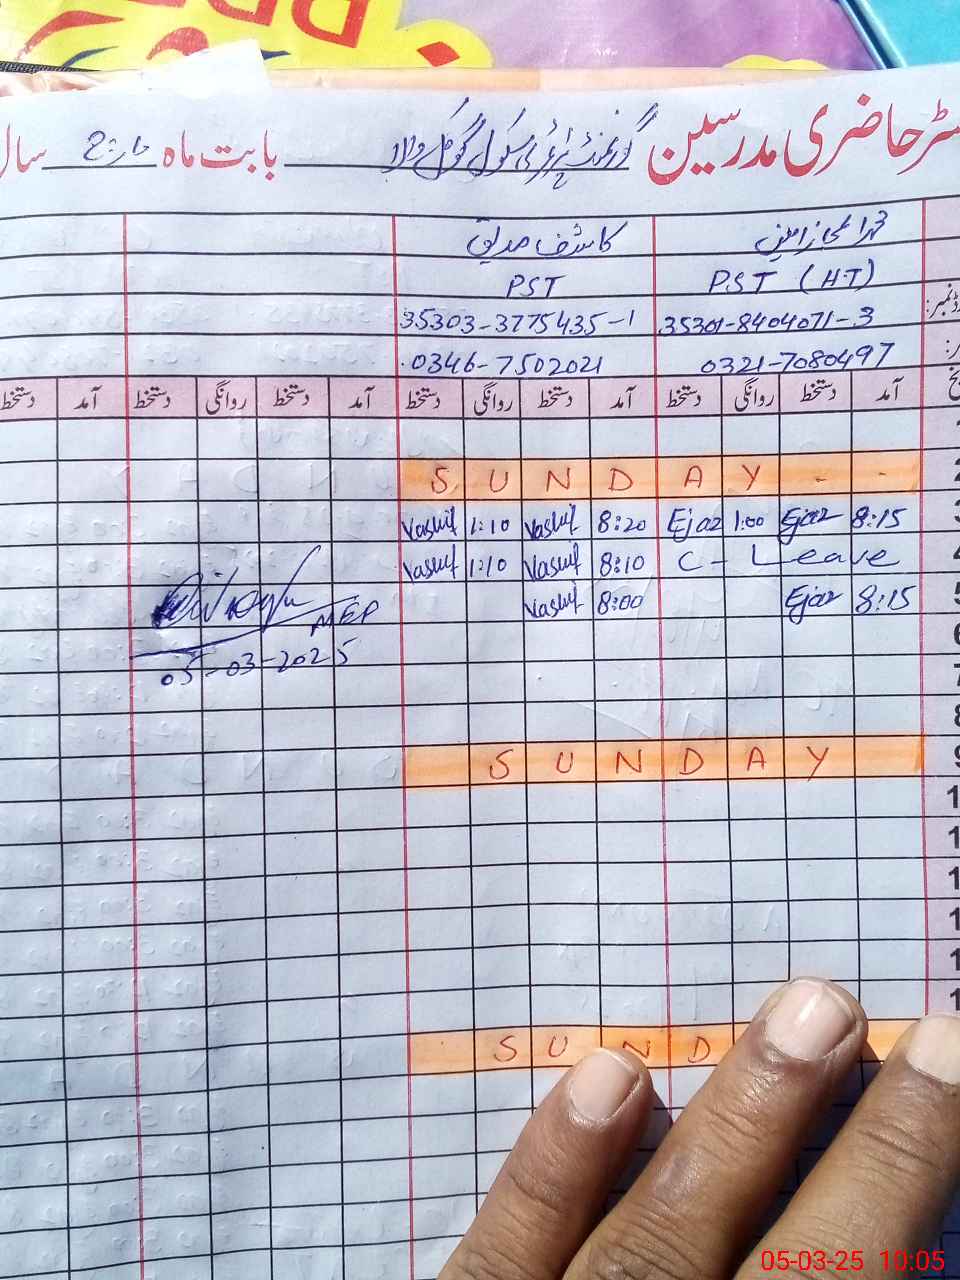 حاضری مدرسین گورنمنٹ پرائمری سکول گوگل والا بابت ماہ مارچ سال
کاشف صدیق
PST (HT) PST
35301-8404071-3 35303-3775435-1
0321-7080497 0346-7502021
آمد دستخط روانگی دستخط آمد دستخط روانگی دستخط آمد دستخط روانگی دستخط آمد دستخط
SUNDAY - -
8:15 Ejaz 1:00 Ejaz 8:20 1:10
C - Leave 8:10 1:10
8:15 Ejaz 8:00
MEP
05-03-2025
6
7
8
SUNDAY
SUND
05-03-25 10:05